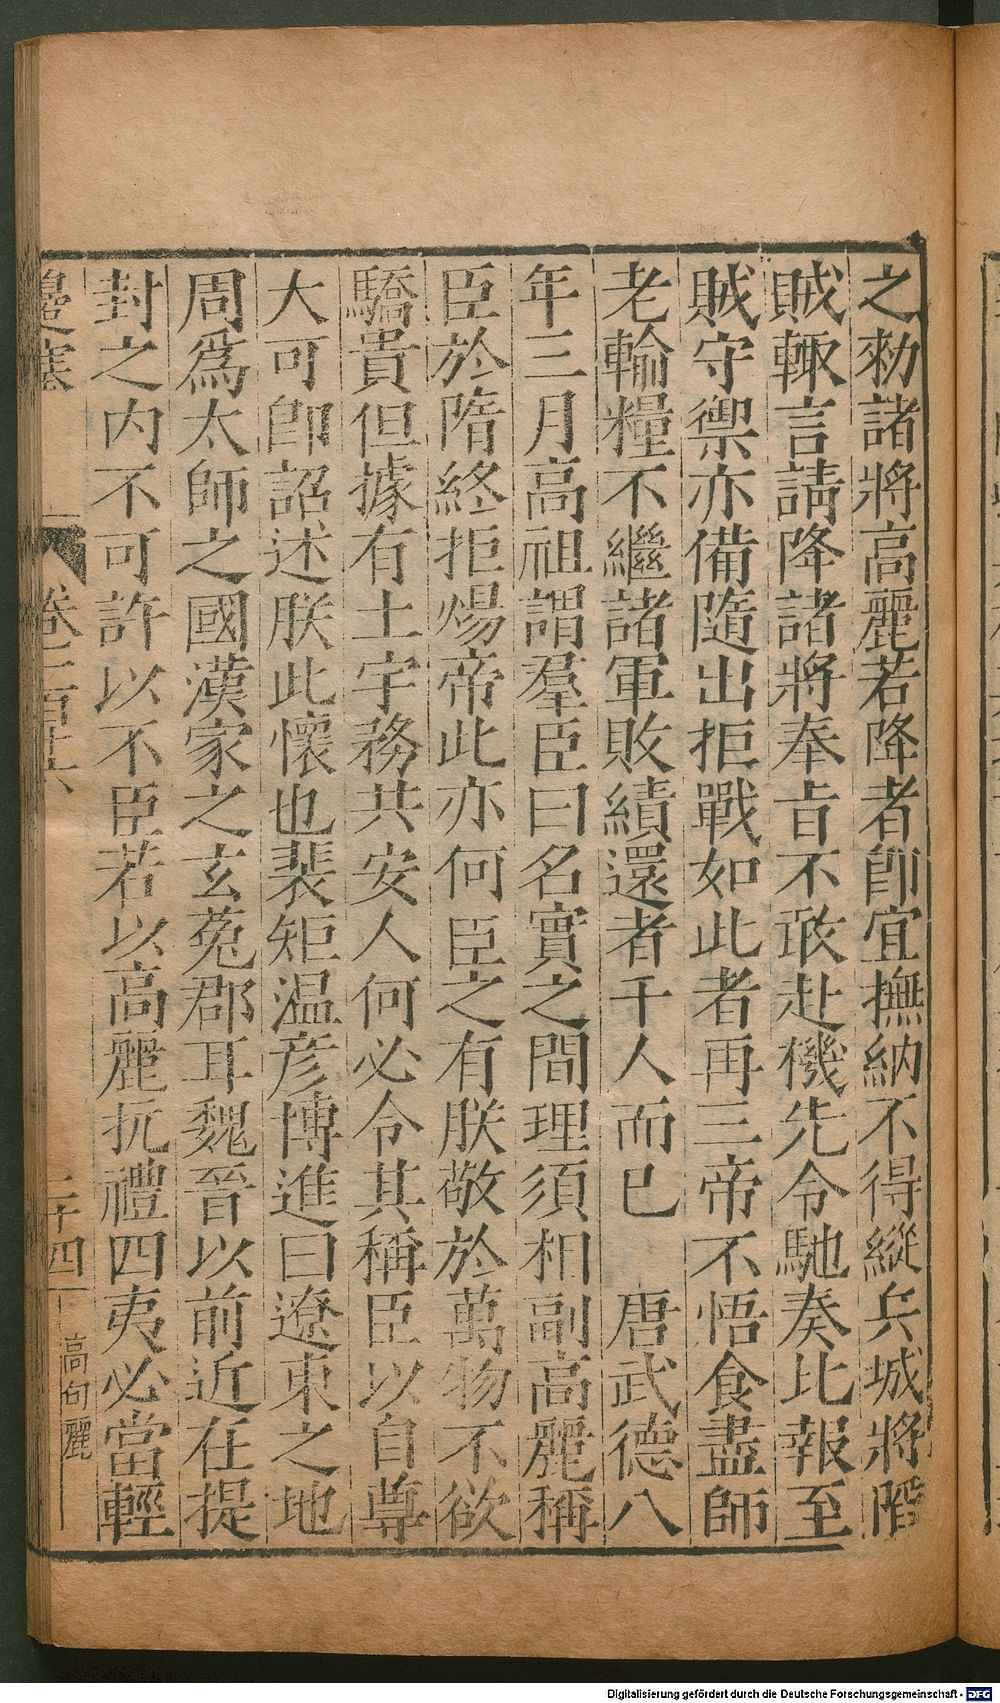 之勑諸將高麗若降者卽宜撫納不得縱兵城將䧟
賊輙言請降諸將奉㫖不敢赴機先令馳奏比報至
賊守禦亦備隨出拒戰如此者再三帝不悟食盡師
老輸糧不繼諸軍敗績還者千人而已 唐武德八
年三月高祖謂羣臣曰名實之間理須相副高麗稱
臣於隋終拒煬帝此亦何臣之有朕敬於萬物不欲
驕貴但據有土宇務共安人何必令其稱臣以自尊
大可卽詔述朕此懷也裴矩温彦博進曰遼東之地
周爲太師之國漢家之玄菟郡耳魏晉以前近在提
封之内不可許以不臣若以高麗抗禮四夷必當輕
邊塞 卷三百廿六 三十四 高句麗
Digitalisierung gefördert durch die Deutsche Forschungsgemeinschaft - DFG